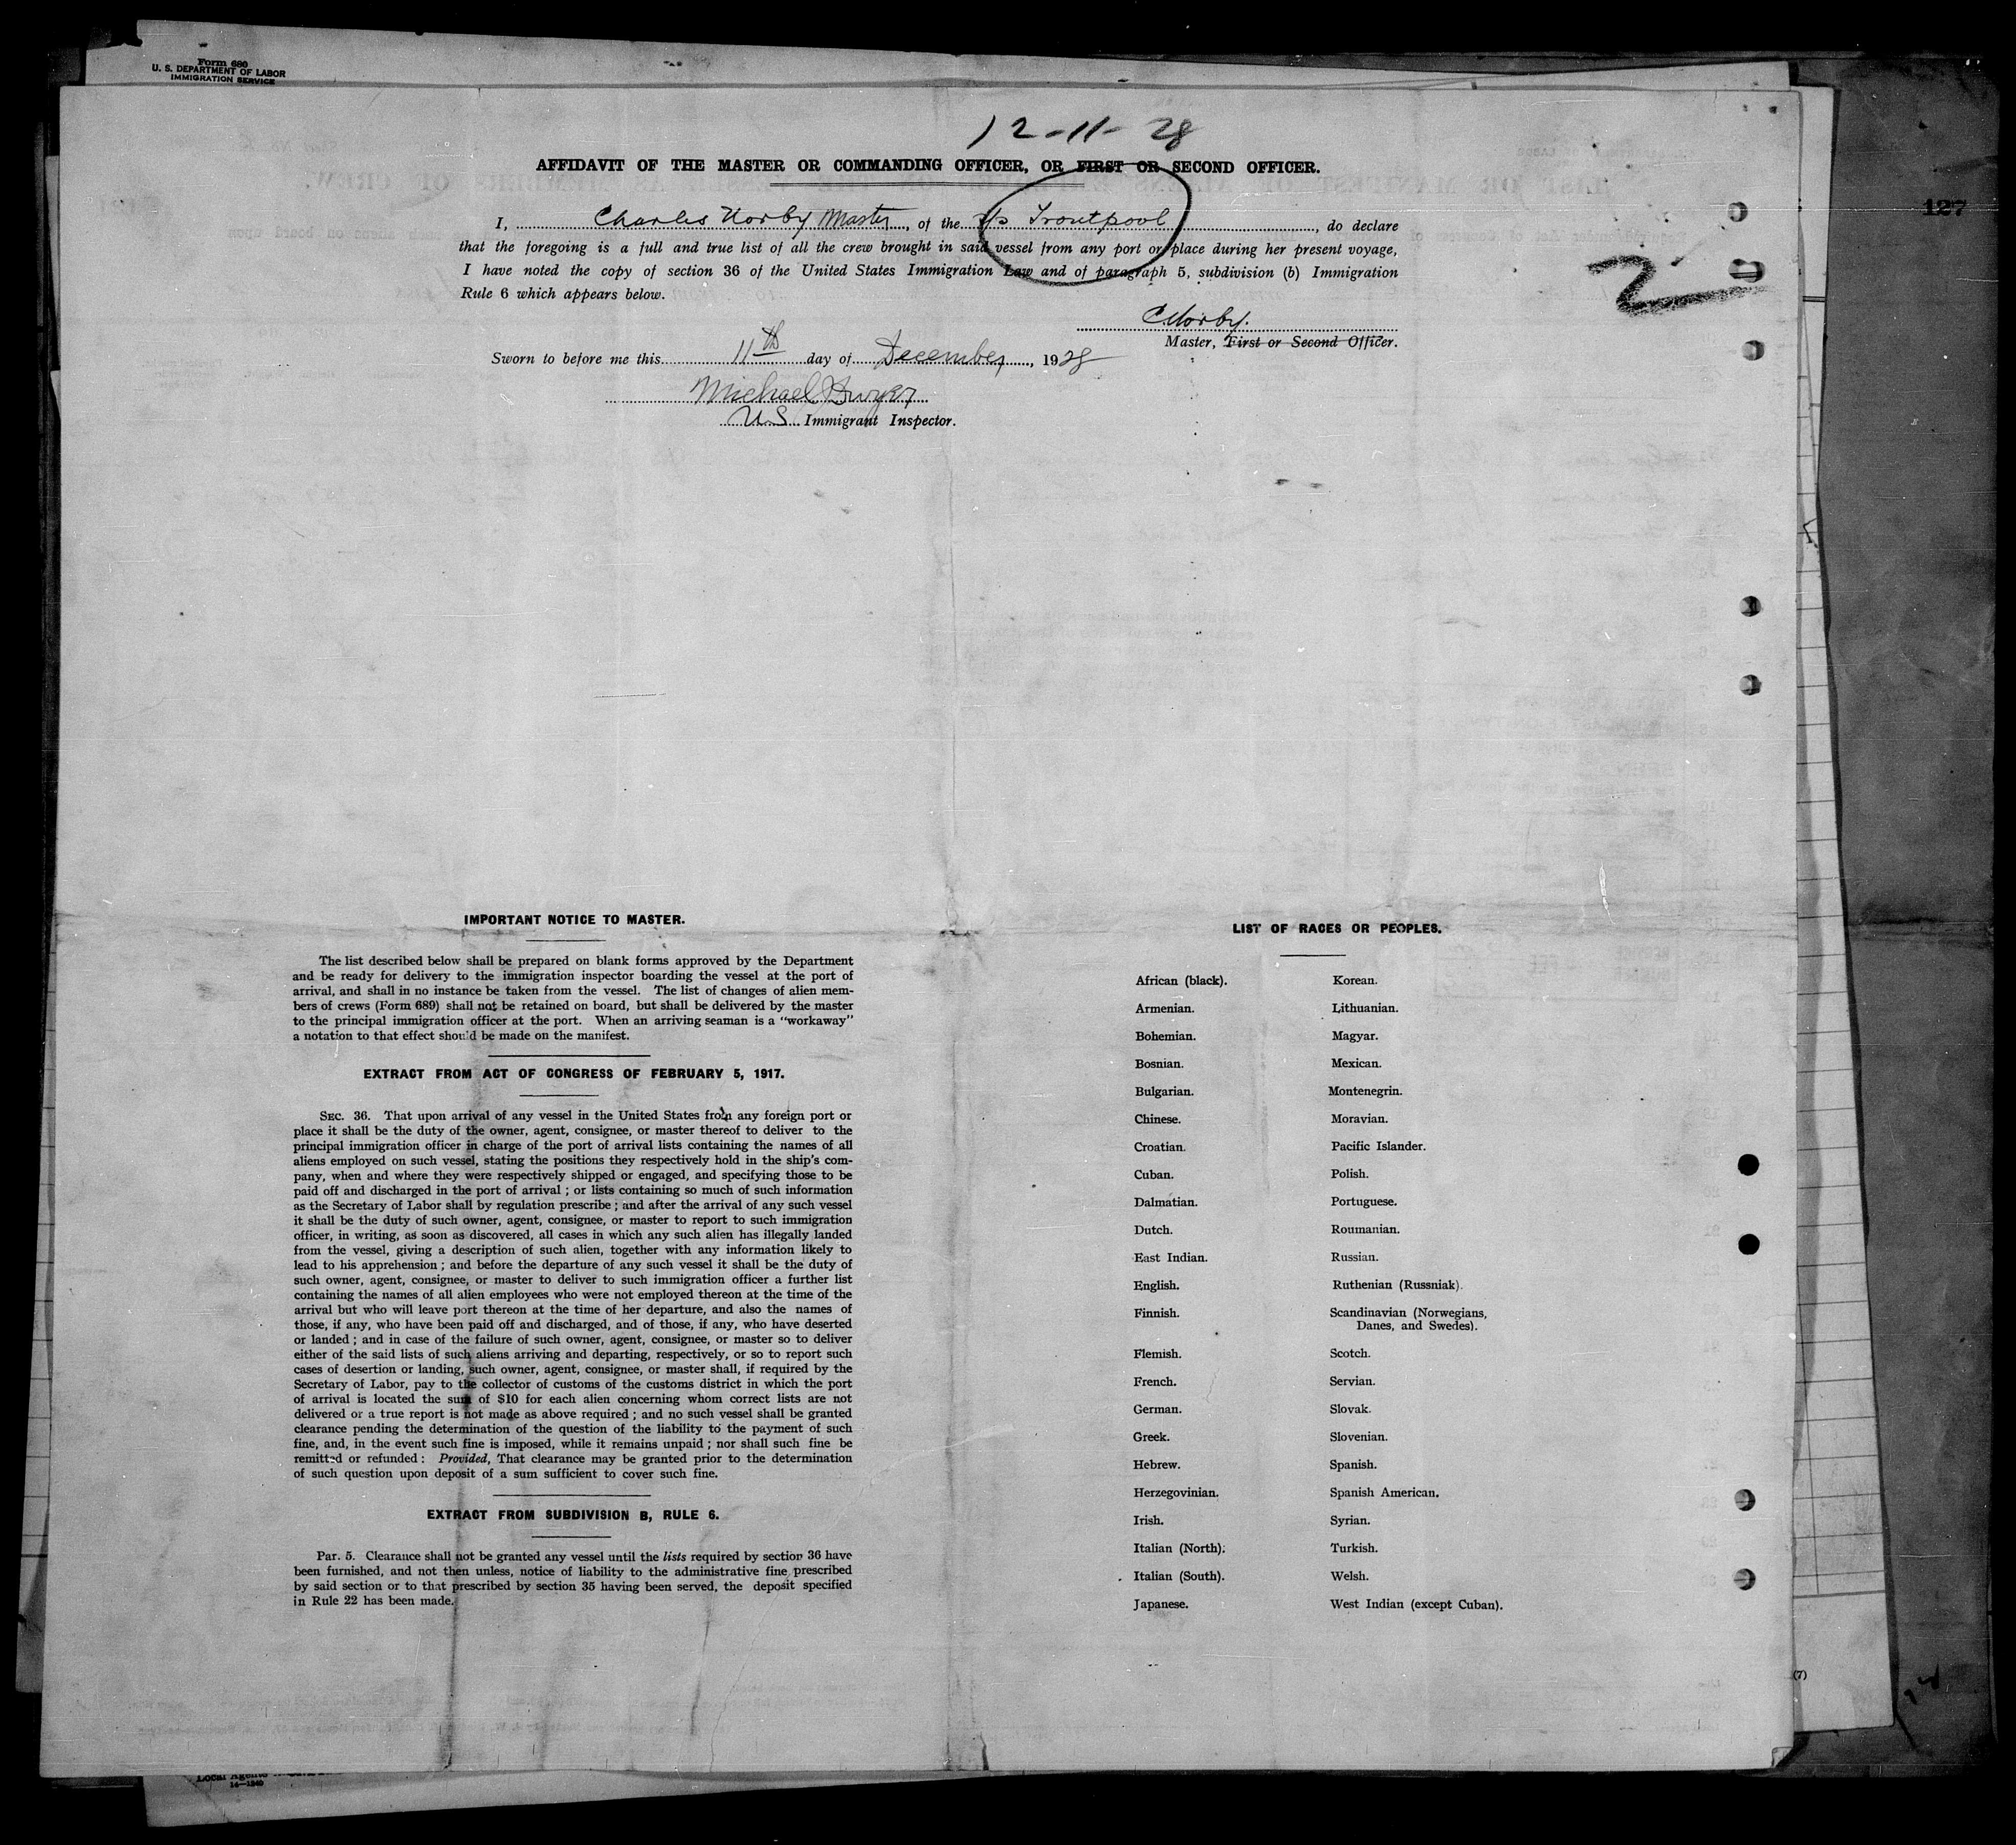 Form 680
U. S. DEPARTMENT OF LABOR
IMMIGRATION SERVICE
12-11-28
AFFIDAVIT OF THE MASTER OR COMMANDING OFFICER, OR FIRST OR SECOND OFFICER.
127
I, Charles Norby Master, of the s/s Troutpool, do declare
that the foregoing is a full and true list of all the crew brought in said vessel from any port or place during her present voyage,
I have noted the copy of section 36 of the United States Immigration Law and of paragraph 5, subdivision (b) Immigration
Rule 6 which appears below.
2
CNorby.
Master, First or Second Officer.
Sworn to before me this 11th day of December, 1928
Michael Dwyer
U.S. Immigrant Inspector.
IMPORTANT NOTICE TO MASTER.
The list described below shall be prepared on blank forms approved by the Department
and be ready for delivery to the immigration inspector boarding the vessel at the port of
arrival, and shall in no instance be taken from the vessel. The list of changes of alien mem-
bers of crews (Form 689) shall not be retained on board, but shall be delivered by the master
to the principal immigration officer at the port. When an arriving seaman is a "workaway"
a notation to that effect should be made on the manifest.
EXTRACT FROM ACT OF CONGRESS OF FEBRUARY 5, 1917.
SEC. 36. That upon arrival of any vessel in the United States from any foreign port or
place it shall be the duty of the owner, agent, consignee, or master thereof to deliver to the
principal immigration officer in charge of the port of arrival lists containing the names of all
aliens employed on such vessel, stating the positions they respectively hold in the ship's com-
pany, when and where they were respectively shipped or engaged, and specifying those to be
paid off and discharged in the port of arrival; or lists containing so much of such information
as the Secretary of Labor shall by regulation prescribe; and after the arrival of any such vessel
it shall be the duty of such owner, agent, consignee, or master to report to such immigration
officer, in writing, as soon as discovered, all cases in which any such alien has illegally landed
from the vessel, giving a description of such alien, together with any information likely to
lead to his apprehension; and before the departure of any such vessel it shall be the duty of
such owner, agent, consignee, or master to deliver to such immigration officer a further list
containing the names of all alien employees who were not employed thereon at the time of the
arrival but who will leave port thereon at the time of her departure, and also the names of
those, if any, who have been paid off and discharged, and of those, if any, who have deserted
or landed; and in case of the failure of such owner, agent, consignee, or master so to deliver
either of the said lists of such aliens arriving and departing, respectively, or so to report such
cases of desertion or landing, such owner, agent, consignee, or master shall, if required by the
Secretary of Labor, pay to the collector of customs of the customs district in which the port
of arrival is located the sum of $10 for each alien concerning whom correct lists are not
delivered or a true report is not made as above required; and no such vessel shall be granted
clearance pending the determination of the question of the liability to the payment of such
fine, and, in the event such fine is imposed, while it remains unpaid; nor shall such fine be
remitted or refunded: Provided, That clearance may be granted prior to the determination
of such question upon deposit of a sum sufficient to cover such fine.
EXTRACT FROM SUBDIVISION B, RULE 6.
Par. 5. Clearance shall not be granted any vessel until the lists required by section 36 have
been furnished, and not then unless, notice of liability to the administrative fine prescribed
by said section or to that prescribed by section 35 having been served, the deposit specified
in Rule 22 has been made.
LIST OF RACES OR PEOPLES.
African (black).
Armenian.
Bohemian.
Bosnian.
Bulgarian.
Chinese.
Croatian.
Cuban.
Dalmatian.
Dutch.
East Indian.
English.
Finnish.
Flemish.
French.
German.
Greek.
Hebrew.
Herzegovinian.
Irish.
Italian (North).
Italian (South).
Japanese.
Korean.
Lithuanian.
Magyar.
Mexican.
Montenegrin.
Moravian.
Pacific Islander.
Polish.
Portuguese.
Roumanian.
Russian.
Ruthenian (Russniak).
Scandinavian (Norwegians,
Danes, and Swedes).
Scotch.
Servian.
Slovak.
Slovenian.
Spanish.
Spanish American.
Syrian.
Turkish.
Welsh.
West Indian (except Cuban).
(7)
Local Agents
14—1240